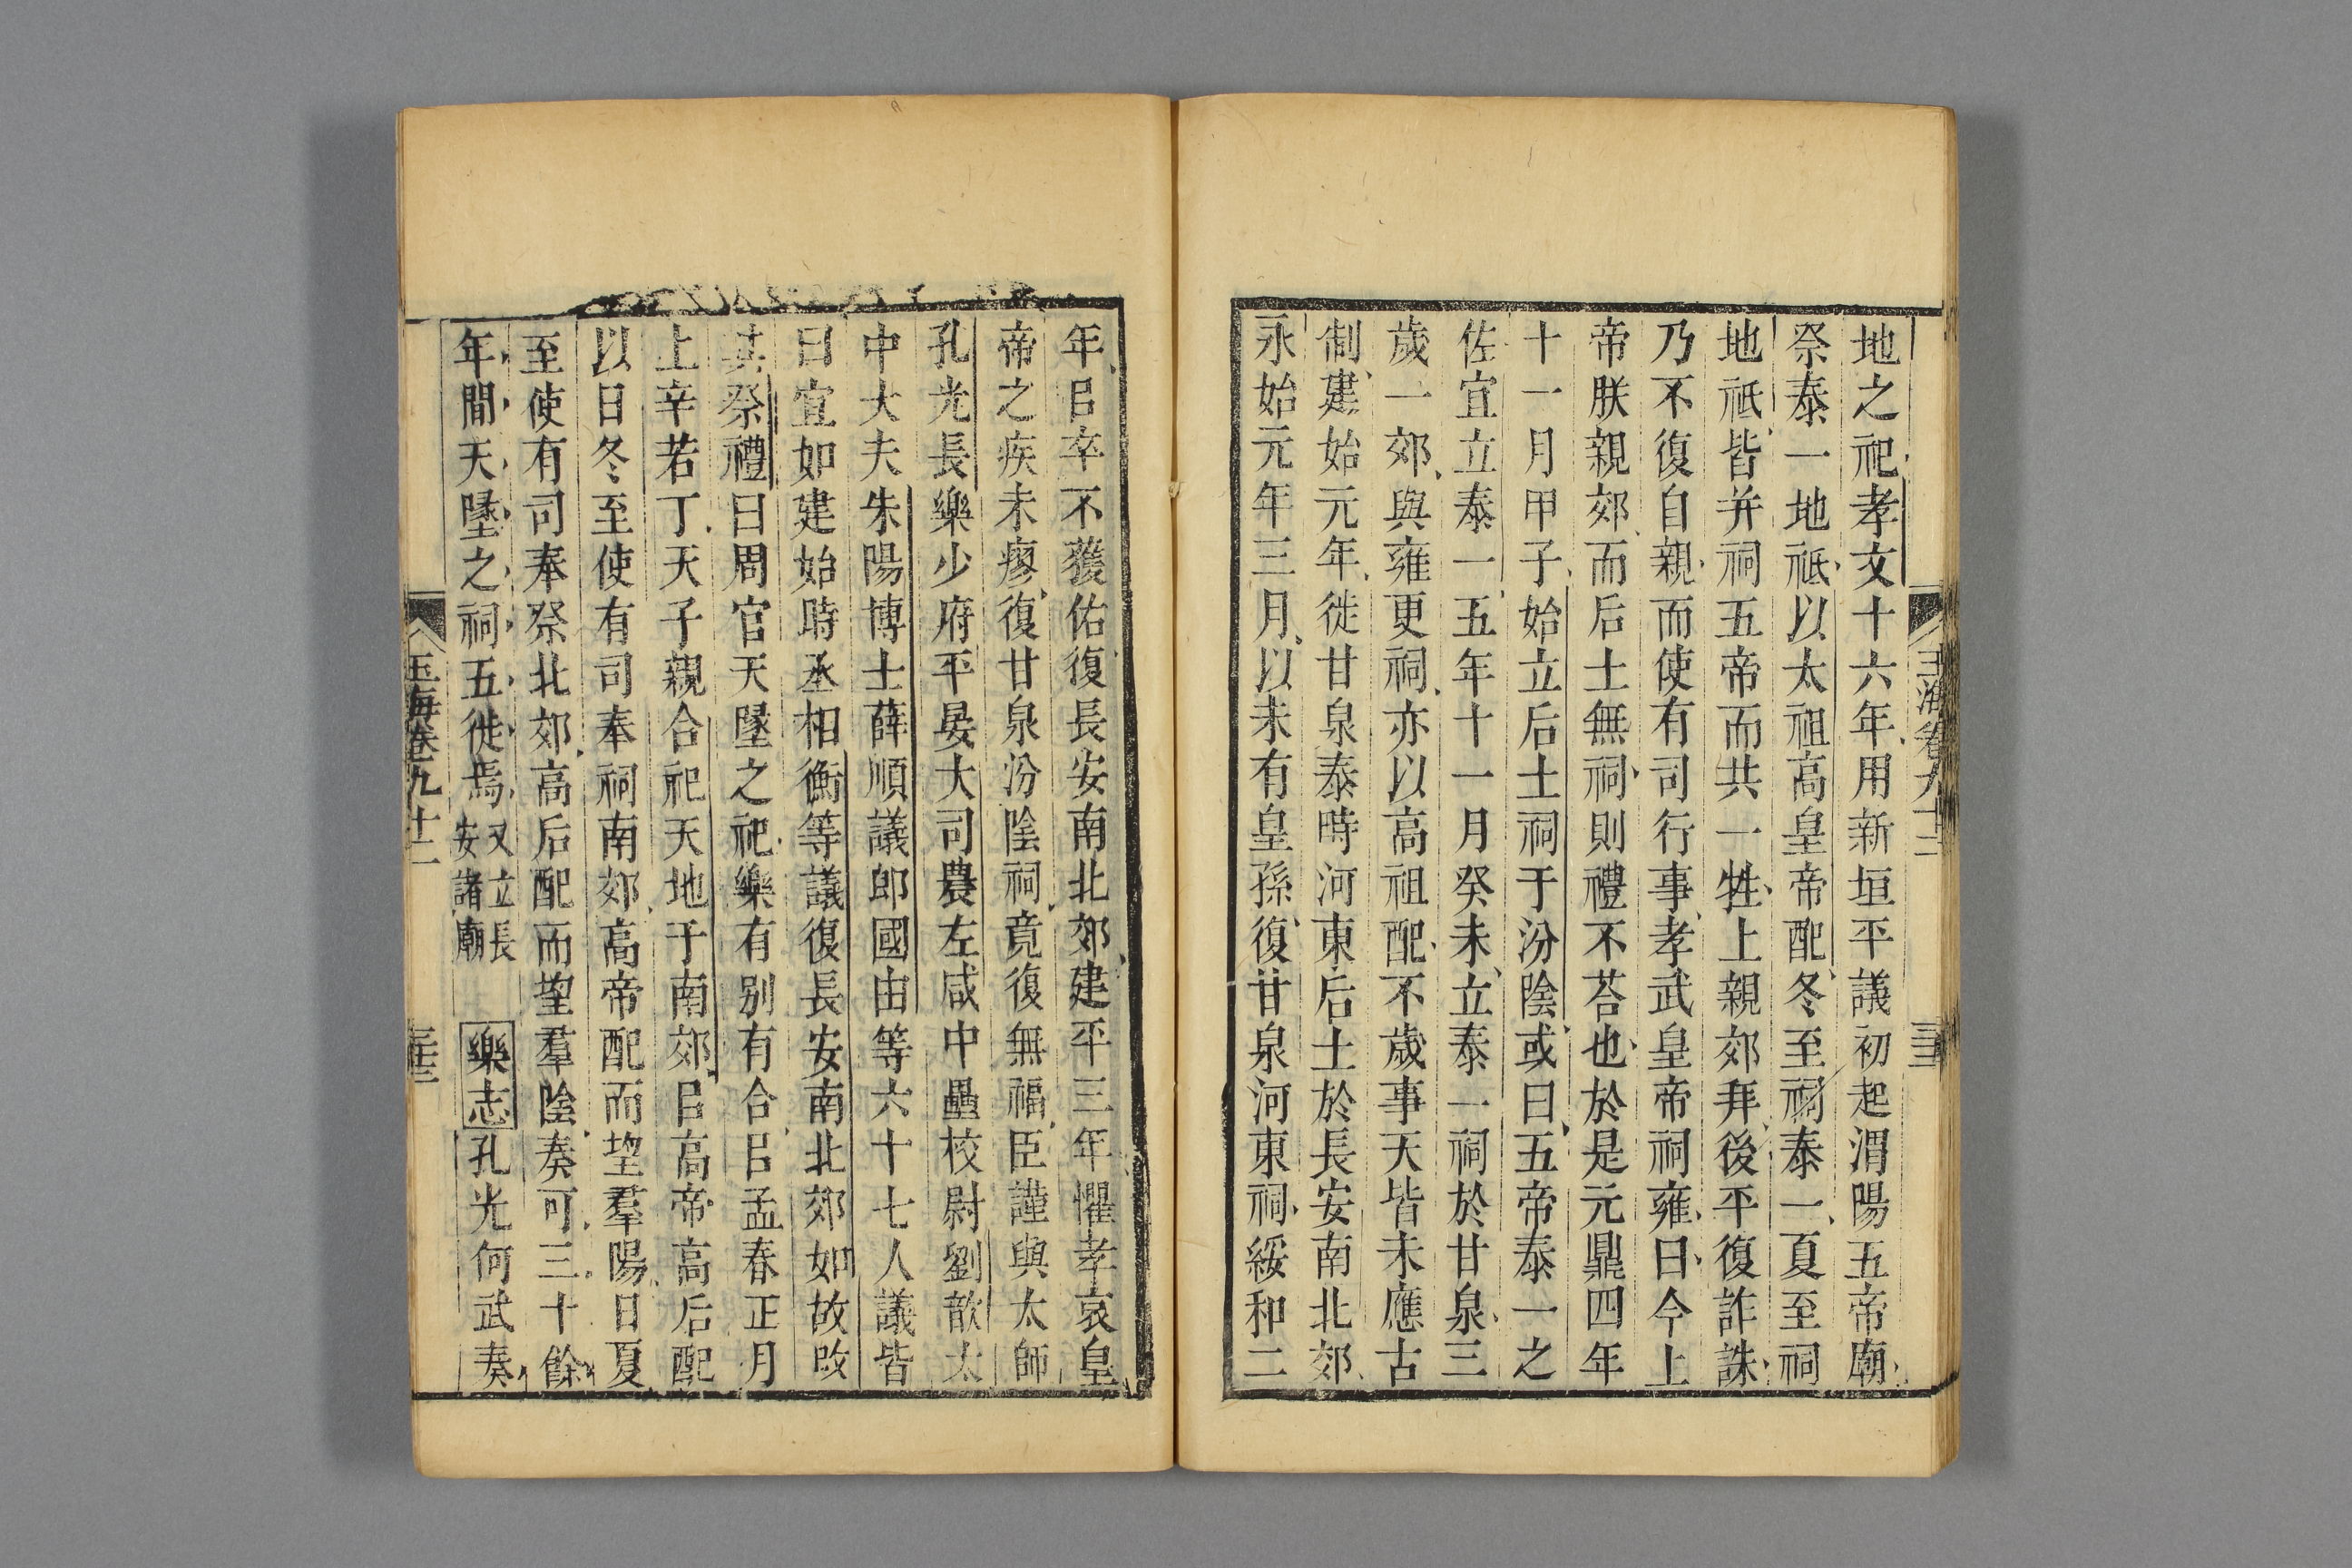 地之祀孝文十六年用新垣平議初起渭陽五帝廟
祭泰一地祇以太祖高皇帝配冬至祠泰一夏至祠
地祇皆并祠五帝而共一牲上親郊拜後平復詐誅
乃不復自親而使有司行事孝武皇帝祠雍曰今上
帝朕親郊而后土無祠則禮不荅也於是元鼎四年
十一月甲子始立后土祠于汾陰或曰五帝泰一之
佐宜立泰一五年十一月癸未立泰一祠於甘泉三
歲一郊與雍更祠亦以高祖配不歲事天皆未應古
制建始元年徙甘泉泰畤河東后土於長安南北郊
永始元年三月以未有皇孫復甘泉河東祠綏和二
年㠯卒不獲佑復長安南北郊建平三年懼孝哀皇
帝之疾未瘳復甘泉汾陰祠竟復無福臣謹與太師
孔光長樂少府平晏大司農左咸中壘校尉劉歆太
中大夫朱陽博士薛順議郎國由等六十七人議皆
曰宜如建始時丞相衡等議復長安南北郊如故改
其祭禮曰周官天墬之祀樂有别有合㠯孟春正月
上辛若丁天子親合祀天地于南郊㠯高帝高后配
以日冬至使有司奉祠南郊高帝配而望羣陽日夏
至使有司奉祭北郊高后配而望羣陰奏可三十餘
年間天墬之祠五徙焉又立長安諸廟 樂志孔光何武奏
玉海卷九十二